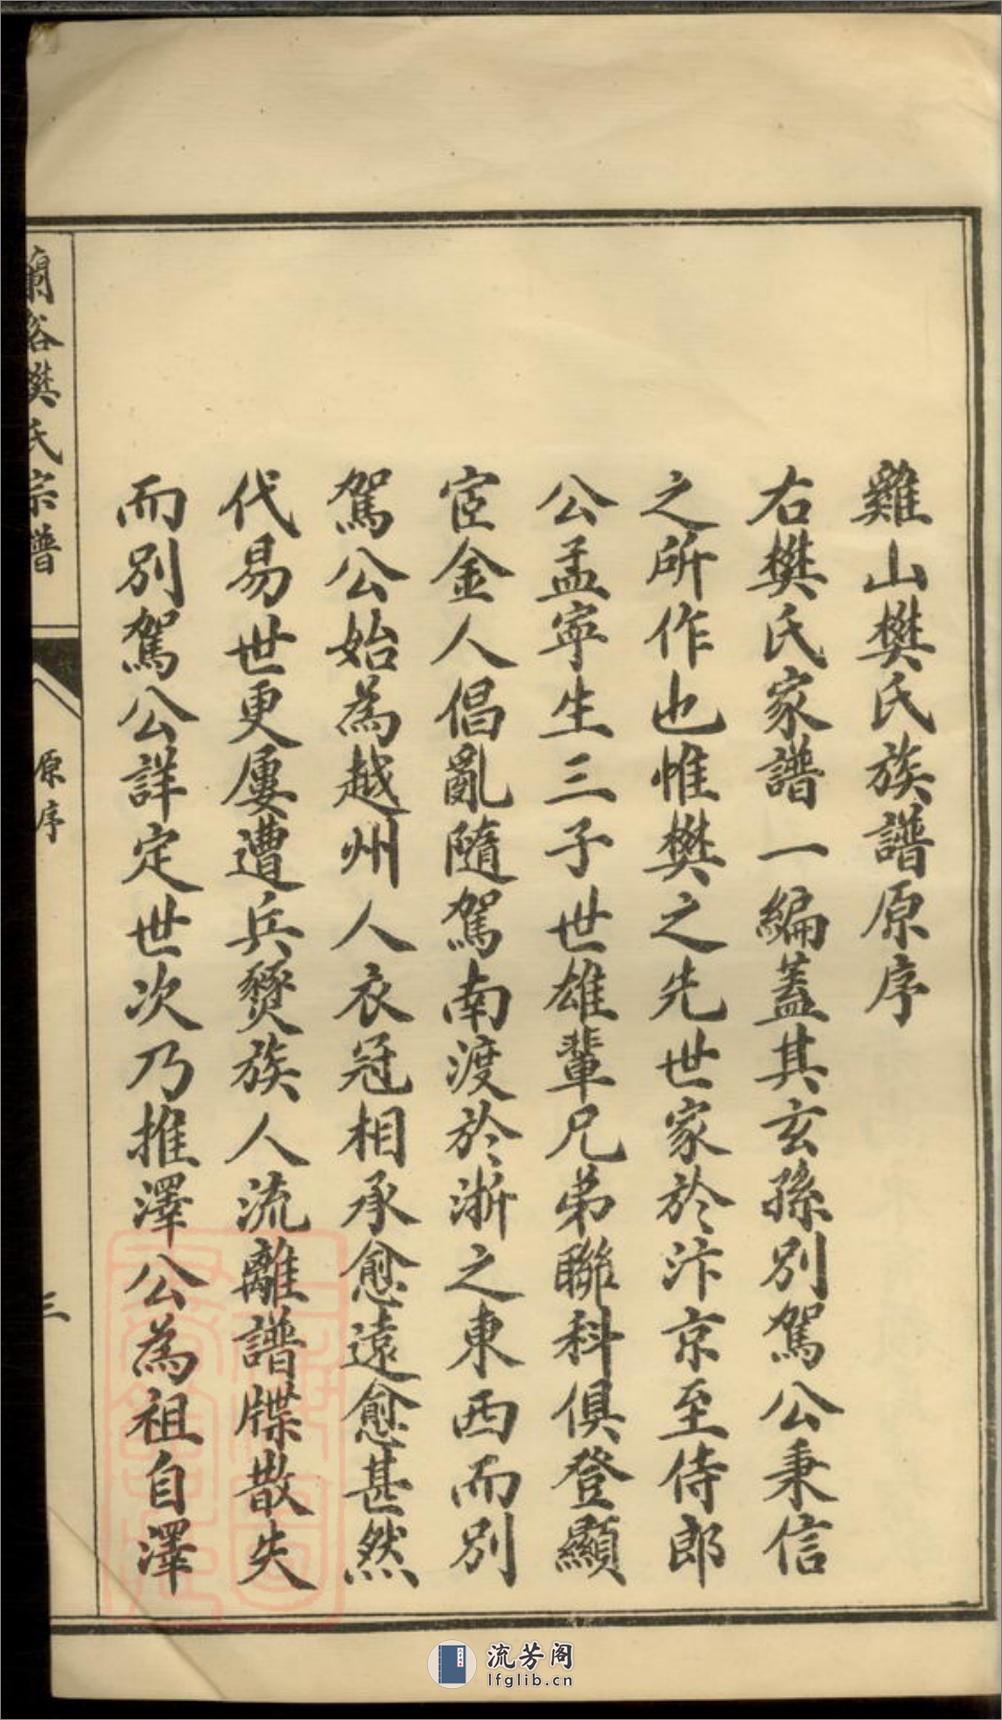 雞山樊氏族譜原序
右樊氏家譜一編蓋其玄孫別駕公秉信
之所作也惟樊之先世家於汴京至侍郎
公孟寧生三子世雄輩兄弟聯科俱登顯
宦金人倡亂隨駕南渡於浙之東西而別
駕公始為越州人衣冠相承愈遠愈甚然
代易世更屢遭兵燹族人流離譜牒散失
而別駕公詳定世次乃推澤公為祖自澤
蘭谿樊氏宗譜
原序
三
流芳阁
lfglib.cn